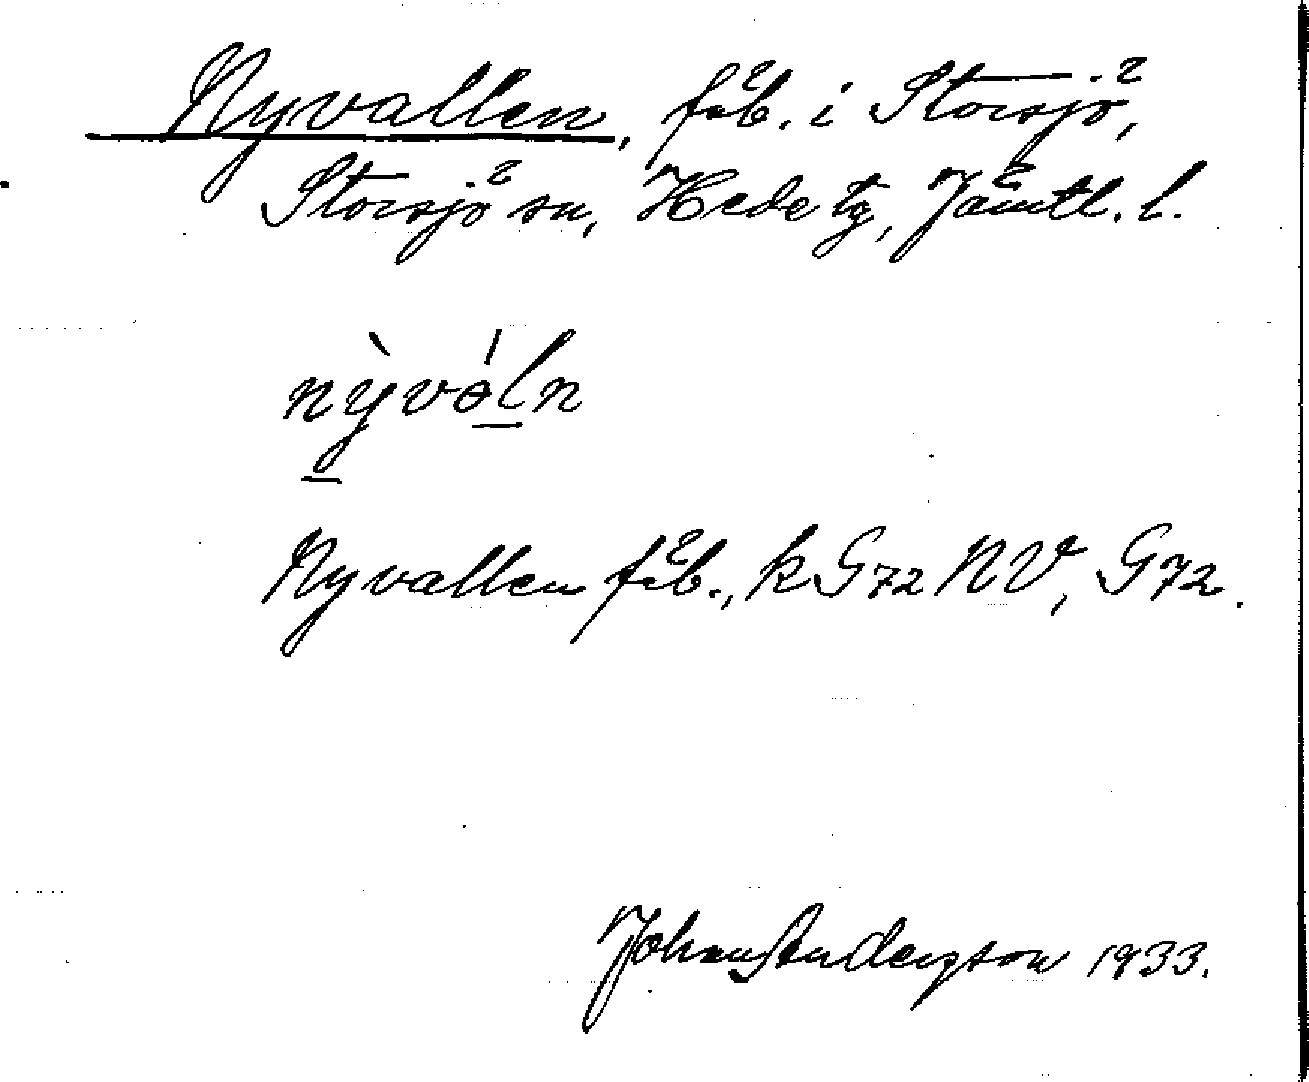 Nyvallen, fäb. i Storsjö,
Storsjö sn, Hede tg, Jämtl. l.
nỳvàĺn
Nyvallen fäb., k G72 NV, G72.
Johan Anderzson 1933.